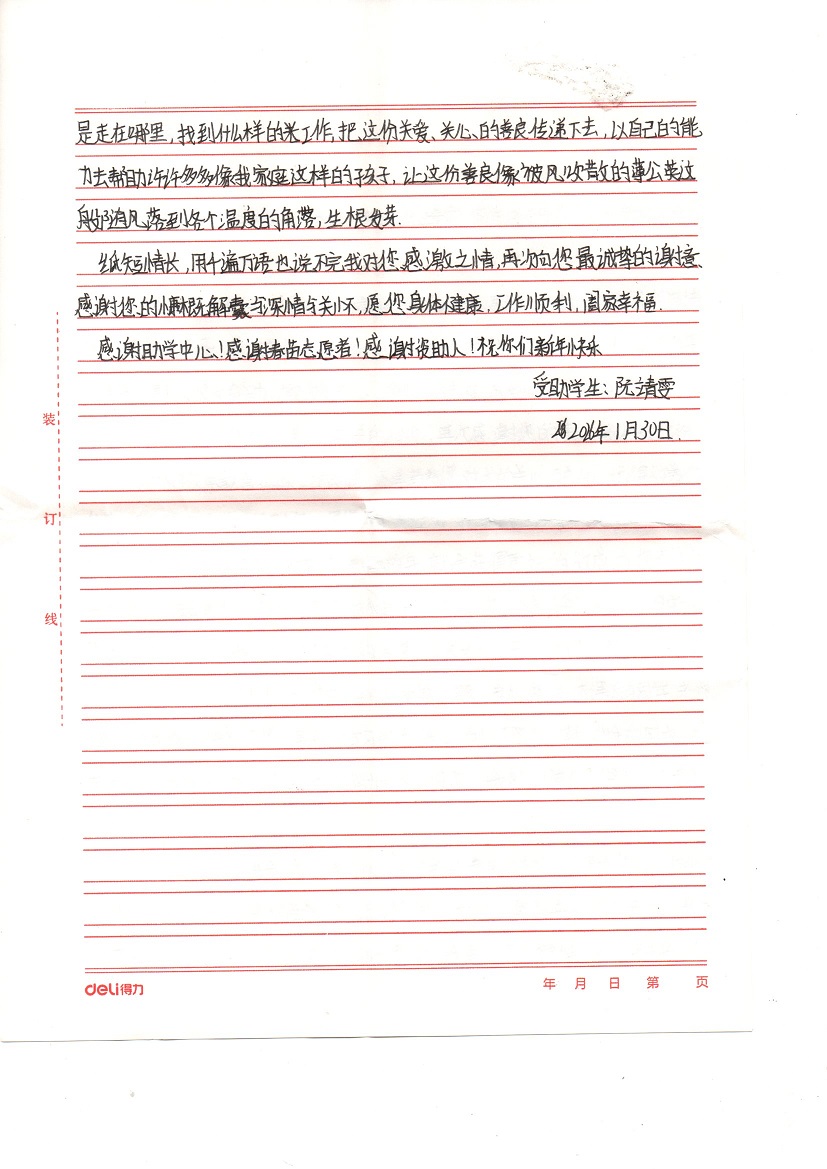 是走在哪里，找到什么样的米工作，把这份关爱、关心、的善良传递下去，以自己的能
力去帮助许许多多像我家庭这样的孩子，让这份善良像被风吹散的蒲公英这
般随风落到各个温度的角落，生根发芽.
纸短情长，用千遍万语也说不完我对您感激之情，再次向您最诚挚的谢意、
感谢您的慷慨解囊与深情与关怀，愿您身体健康，工作顺利，阖家幸福.
感谢助学中心！感谢春苗志愿者！感谢资助人！祝你们新年快乐
受助学生：阮靖雯
2026年1月30日.
装
订
线
deli得力
年 月 日 第 页